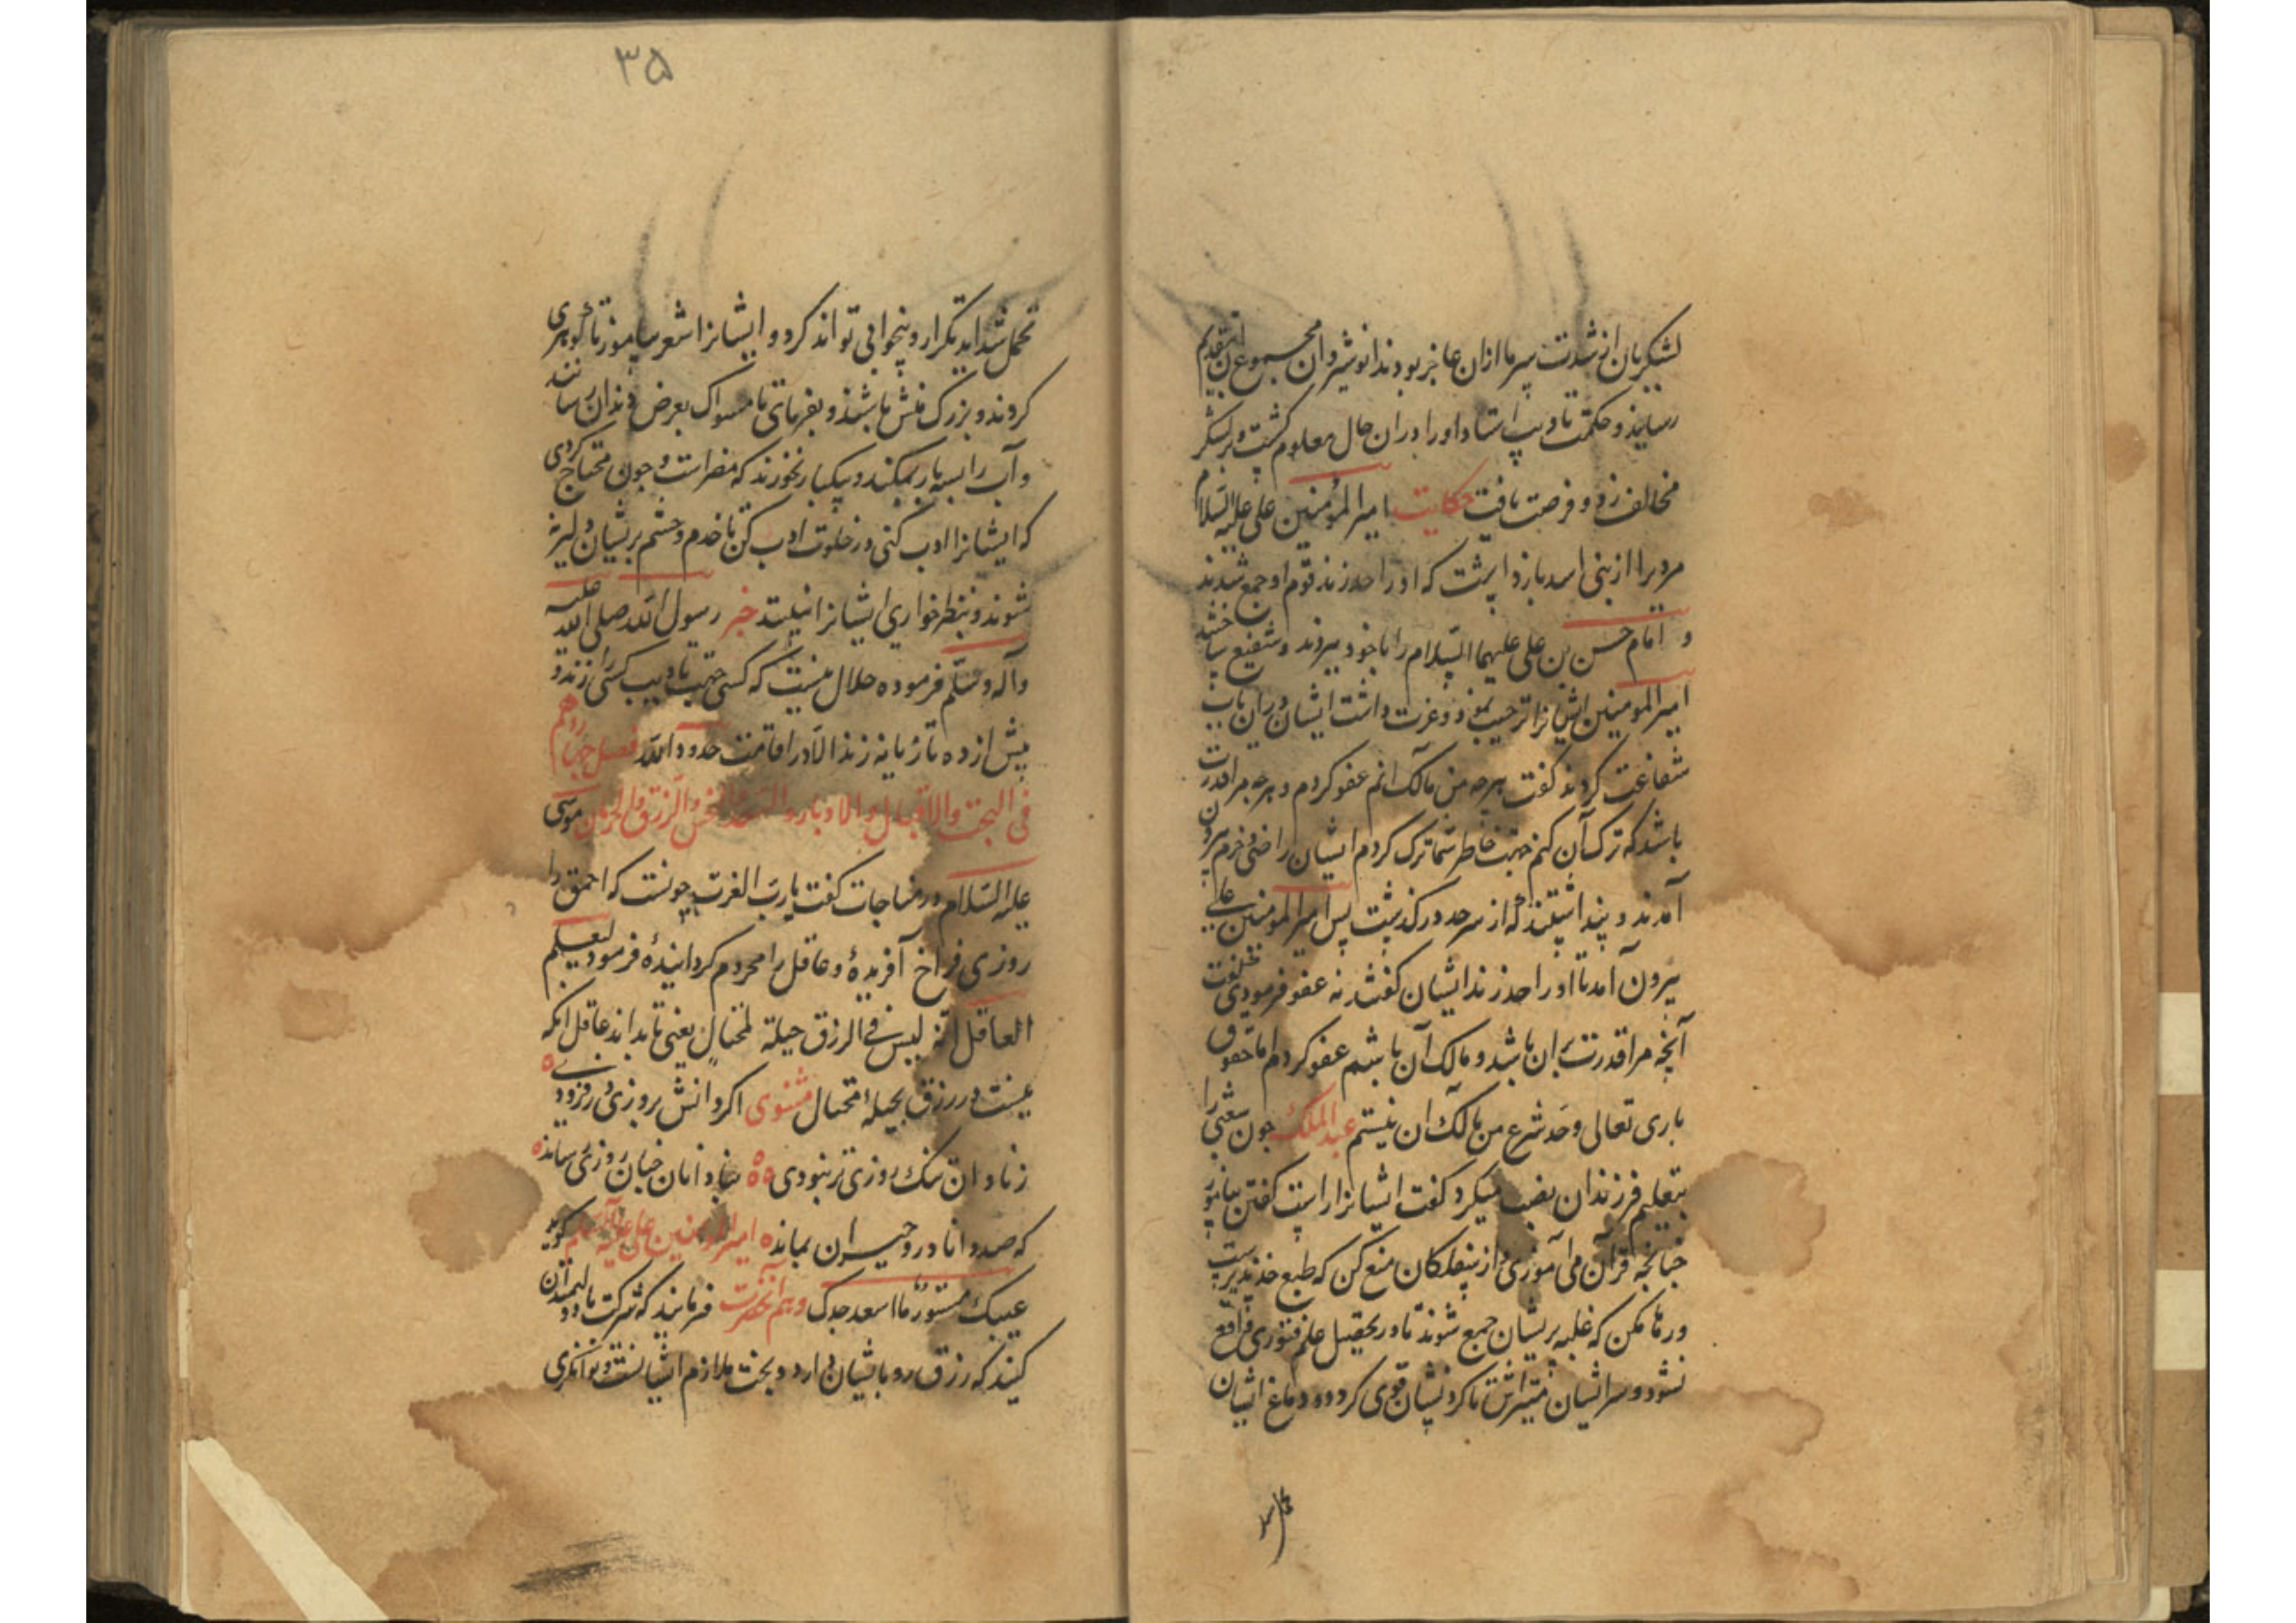 لشکریان از شدت سرما ازان عاجز بودند انوشیروان مجموع آن بتقدیم
رسانید و حکمت تادیب استاد اورا دران حال معلوم کشت و بر لشکر
مخالف زد و فرصت یافت حکایت امیر المؤمنین علی علیه السلام
مردیرا از بنی اسد بازداشت که اورا حد زند قوم او جمع شدند
و امام حسن بن علی علیهما السلام را با خود ببردند و شفیع ساختند
امیر المومنین ایشانرا ترحیب نمود و عزت داشت ایشان دران باب
شفاعت کردند کفت هرچه من مالک انم عفو کردم و هرچه مرا قدرت
باشد که ترک آن کنم جهت خاطر شما ترک کردم ایشان راضی و خرم بیرون
آمدند و پنداشتند که از سر حد درکذشت پس امیر المومنین علی
بیرون آمد تا اورا حد زند ایشان کفتند نه عفو فرمودی کفت
آنچه مرا قدرت بران باشد و مالک آن باشم عفو کردم اما حقوق
باری تعالی و حد شرع من مالک ان نیستم عبد الملک چون شعبی را
بتعلیم فرزندان نصب میکرد کفت ایشانرا راست کفتن بیاموز
چنانچه قرآن می آموزی و از سفلکان منع کن که طبع خذ پذیرست
و رها مکن که غلبه بریشان جمع شوند تا در تحصیل علم فتوری واقع
نشود و سر ایشان متراش تا کردنشان قوی کردد و دماغ ایشان
تحمل
۳۵
تحمل شداید تکرار و بیخوابی تواند کرد و ایشانرا شعر بیاموز تا جوهری
کردند و بزرک منش باشند و بفرمای تا مسواک بعرض دندان رسانند
و آب را بسه بار بمکند و بیکبار نخورند که مضر است و چون محتاج کردی
که ایشانرا ادب کنی در خلوت ادب کن تا خدم و حشم بریشان دلیر نه
شوند و بنظر خواری ایشانرا نبینند خبر رسول الله صلی الله علیه
وآله و سلم فرموده حلال نیست که کسی جهت تادیب کسی را زند و
بیش از ده تازیانه زند الا در اقامت حدود الله فصل چهاردهم
فی البخت والاقبال والادبار والسعد والنحس والرزق والحرمان موسی
علیه السلام در مناجات کفت یا رب العزت چونست که احمق را
روزی فراخ آفریدهٔ و عاقل را محروم کردانیدهٔ فرمود لیعلم
العاقل انه لیس فی الرزق حیلة لمحتال یعنی تا بداند عاقل انکه
نیست در رزق بحیله احتیال مثنوی اکر دانش بروزی در فزودی
ز نادان تنک روزی تر نبودی بنادانان چنان روزی رساند
که صد دانا درو حیران بماند امیر المومنین علی علیه السلام کوید
عیبک مستور ما اسعد جدک و هم آنحضرت فرمایند که شرکت با دولتمندان
کنید که رزق رو بایشان دارد و بخت ملازم ایشانست و توانکری